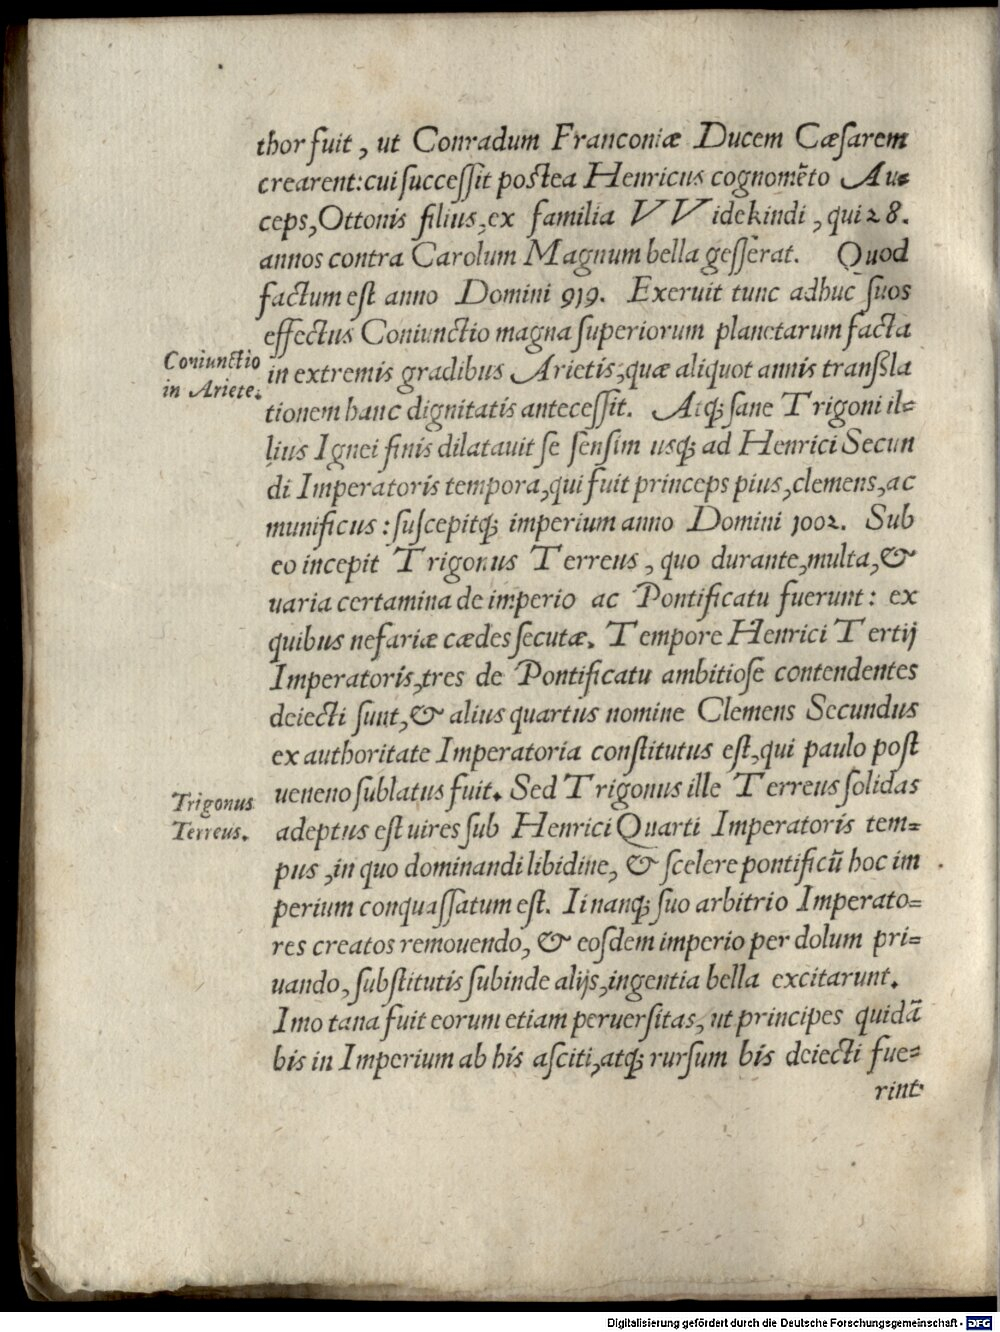 thor fuit, ut Conradum Franconiæ Ducem Cæſarem
crearent: cui ſucceſſit poſtea Henricus cognomēto Au-
ceps, Ottonis filius, ex familia VVidekindi, qui 28.
annos contra Carolum Magnum bella geſſerat. Quod
factum eſt anno Domini 919. Exeruit tunc adhuc ſuos
effectus Coniunctio magna ſuperiorum planetarum facta
Coniunctio
in Ariete.
in extremis gradibus Arietis, quæ aliquot annis tranſla
tionem hanc dignitatis anteceſſit. Atq; ſane Trigoni il-
lius Ignei finis dilatauit ſe ſenſim usq; ad Henrici Secun
di Imperatoris tempora, qui fuit princeps pius, clemens, ac
munificus: ſuſcepitq; imperium anno Domini 1002. Sub
eo incepit Trigonus Terreus, quo durante, multa, &
uaria certamina de imperio ac Pontificatu fuerunt: ex
quibus nefariæ cædes ſecutæ. Tempore Henrici Tertij
Imperatoris, tres de Pontificatu ambitioſe contendentes
deiecti ſunt, & alius quartus nomine Clemens Secundus
ex authoritate Imperatoria conſtitutus eſt, qui paulo poſt
Trigonus
Terreus.
ueneno ſublatus fuit. Sed Trigonus ille Terreus ſolidas
adeptus eſt uires ſub Henrici Quarti Imperatoris tem-
pus, in quo dominandi libidine, & ſcelere pontificū hoc im
perium conquaſſatum eſt. Ii nanq; ſuo arbitrio Imperato-
res creatos remouendo, & eoſdem imperio per dolum pri-
uando, ſubſtitutis ſubinde alijs, ingentia bella excitarunt.
Imo tana fuit eorum etiam peruerſitas, ut principes quidā
bis in Imperium ab his aſciti, atq; rurſum bis deiecti fue-
rint
Digitalisierung gefördert durch die Deutsche Forschungsgemeinschaft - DFG